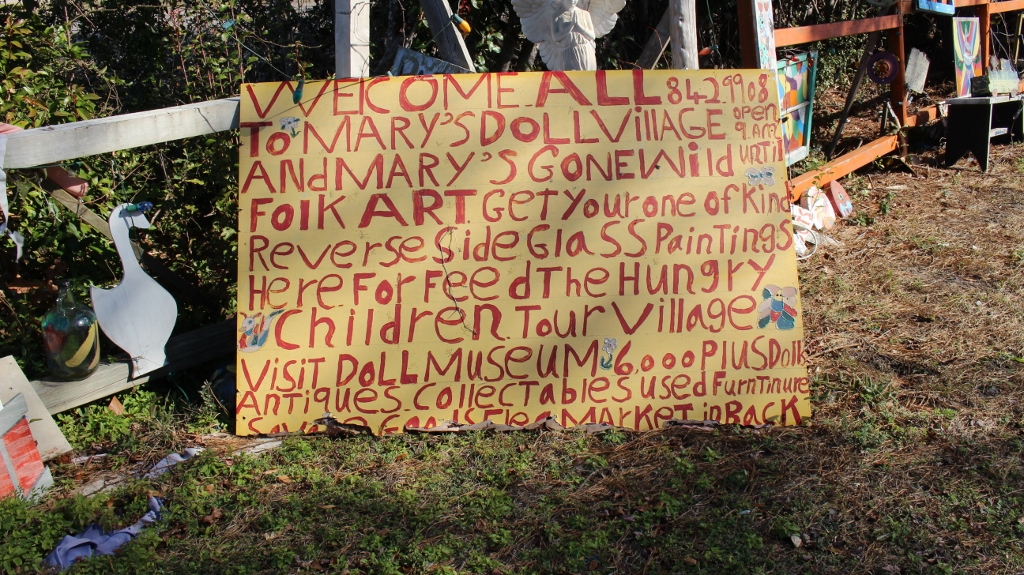 WELCOME. ALL 842.9908
TO MARY'S DOLL VillAGE open 9 A.M.
ANd MARY'S GONE Wild URTil
FOlK ART. GeT Your one of Kind
Reverse Side GlASS PainTings
Here For Feed The Hungry
Children. Tour Village
VISIT DOLL MUSEUM 6,000 PlUS Doll
AnTiques collecTables used FurnTinure
MARKeT in BACK